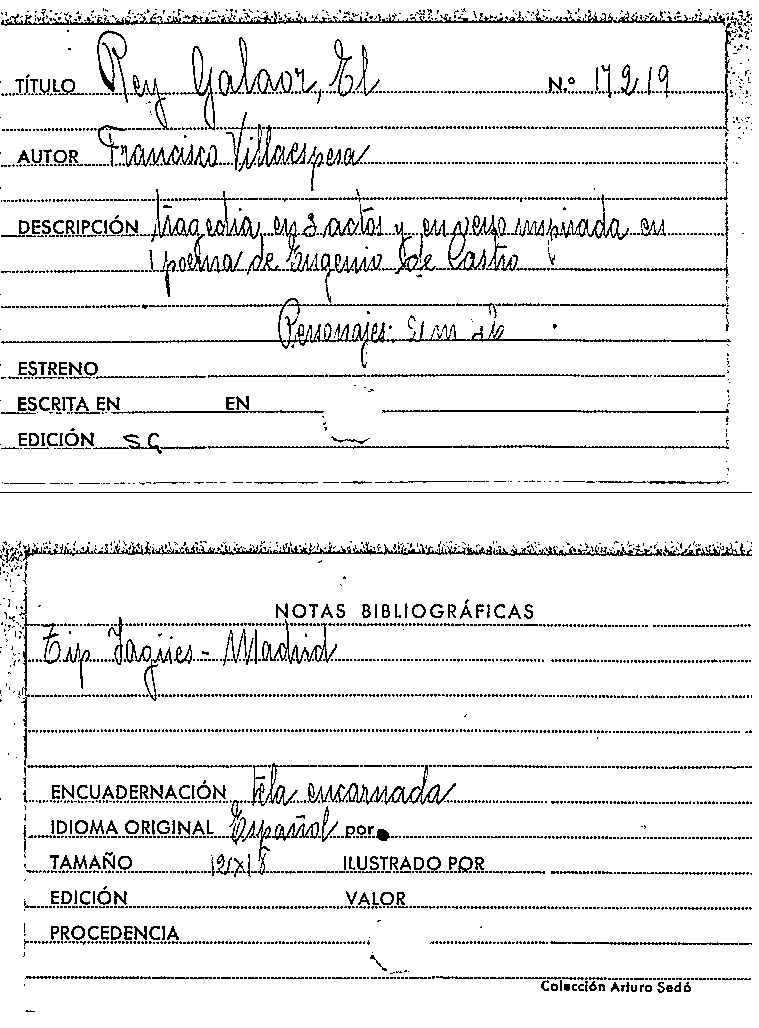 TÍTULO Rey Galaor, El N.º 17219
AUTOR Francisco Villaespesa
DESCRIPCIÓN tragedia en 3 actos y en verso inspirada en
poema de Eugenio de Castro
Personajes:
ESTRENO
ESCRITA EN EN
EDICIÓN SG
NOTAS BIBLIOGRÁFICAS
Tip Yagües - Madrid
ENCUADERNACIÓN tela encarnada
IDIOMA ORIGINAL Español por
TAMAÑO 12x18 ILUSTRADO POR
EDICIÓN VALOR
PROCEDENCIA
Colección Arturo Sedó